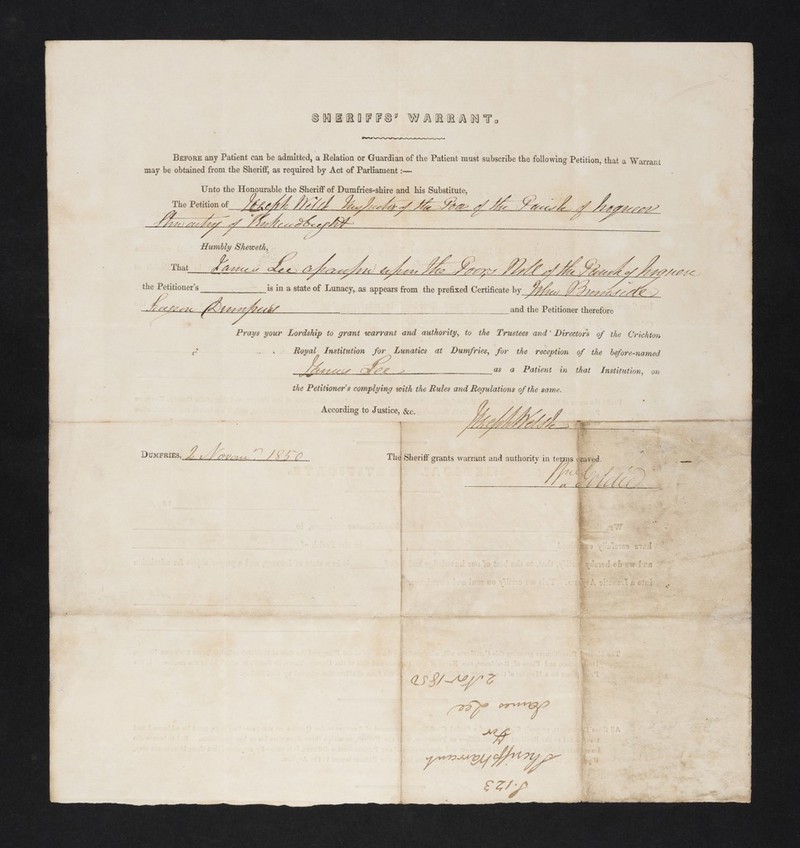 SHERIFFS' WARRANT.
BEFORE any Patient can be admitted, a Relation or Guardian of the Patient must subscribe the following Petition, that a Warrant
may be obtained from the Sheriff, as required by Act of Parliament:—
Unto the Honourable the Sheriff of Dumfries-shire and his Substitute,
The Petition of Joseph Welsh Inspector of the Poor of the Parish of Troqueer
Stewartry of Kirkcudbright
Humbly Sheweth,
That James Lee a pauper upon the Poors Roll of the Parish of Troqueer
the Petitioner's is in a state of Lunacy, as appears from the prefixed Certificate by John Burnside
Surgeon Dumfries and the Petitioner therefore
Prays your Lordship to grant warrant and authority, to the Trustees and Directors of the Crichton
Royal Institution for Lunatics at Dumfries, for the reception of the before-named
James Lee as a Patient in that Institution, on
the Petitioner's complying with the Rules and Regulations of the same.
According to Justice, &c.
Joseph Welsh
DUMFRIES, 2 Novemr 1850 The Sheriff grants warrant and authority in terms craved.
Goldie
J. 123
Sheriffs Warrant
for
James Lee
2 Nov 1850